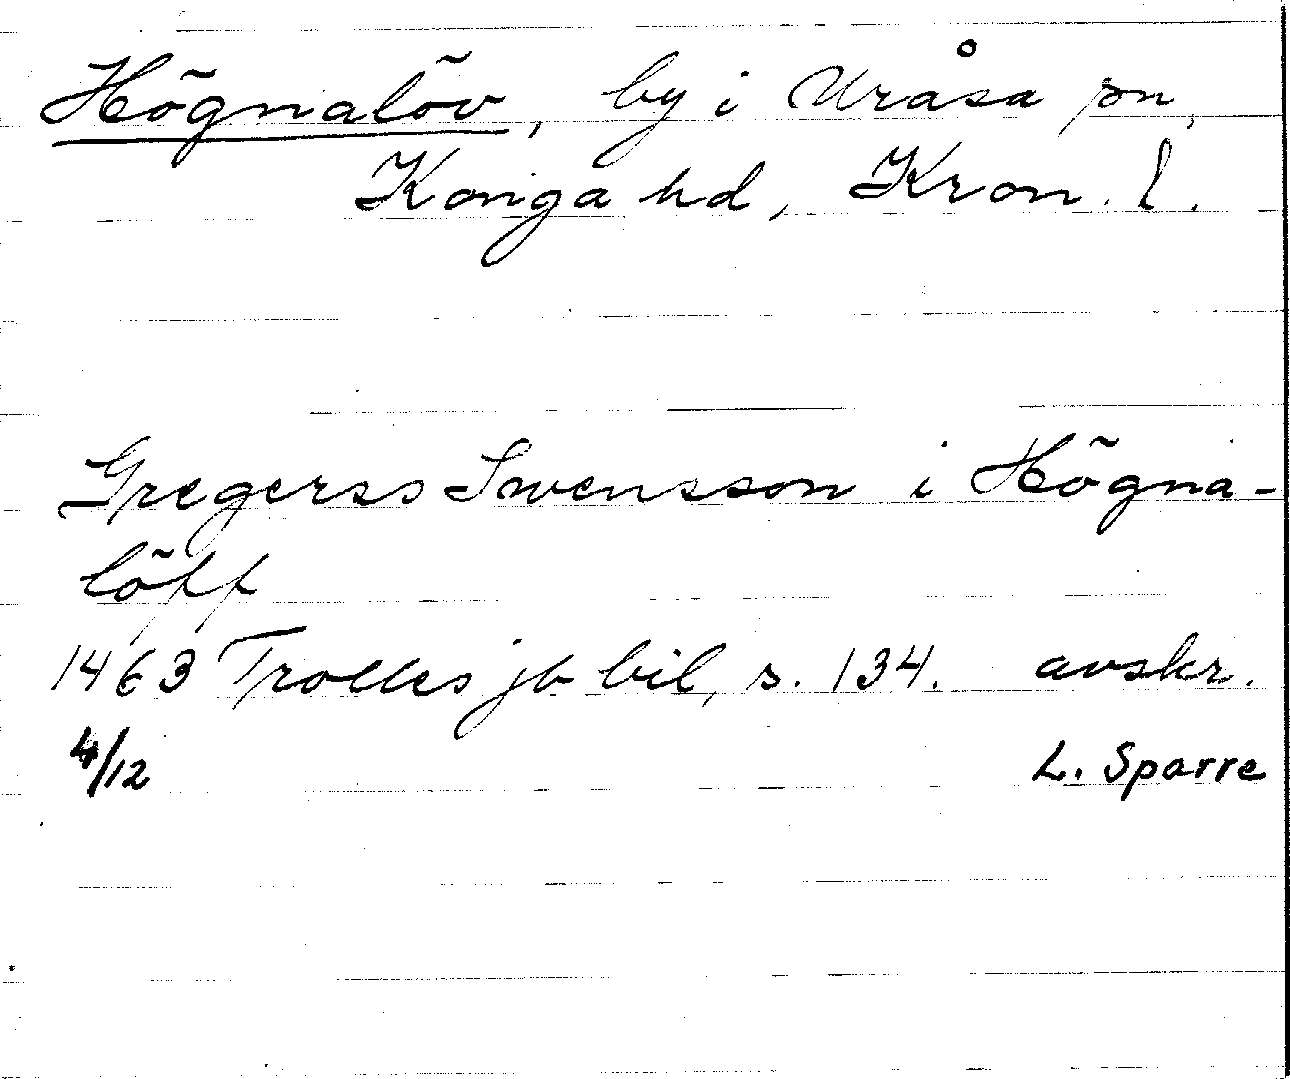 Högnalöv, by i Uråsa sn,
Konga hd, Kron. l.
Gregerss Swensson i Högna-
löff
1463 Trolles jb bil, s. 134. avskr.
4/12 L. Sparre